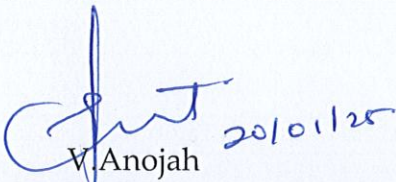 20/01/25
V.Anojah